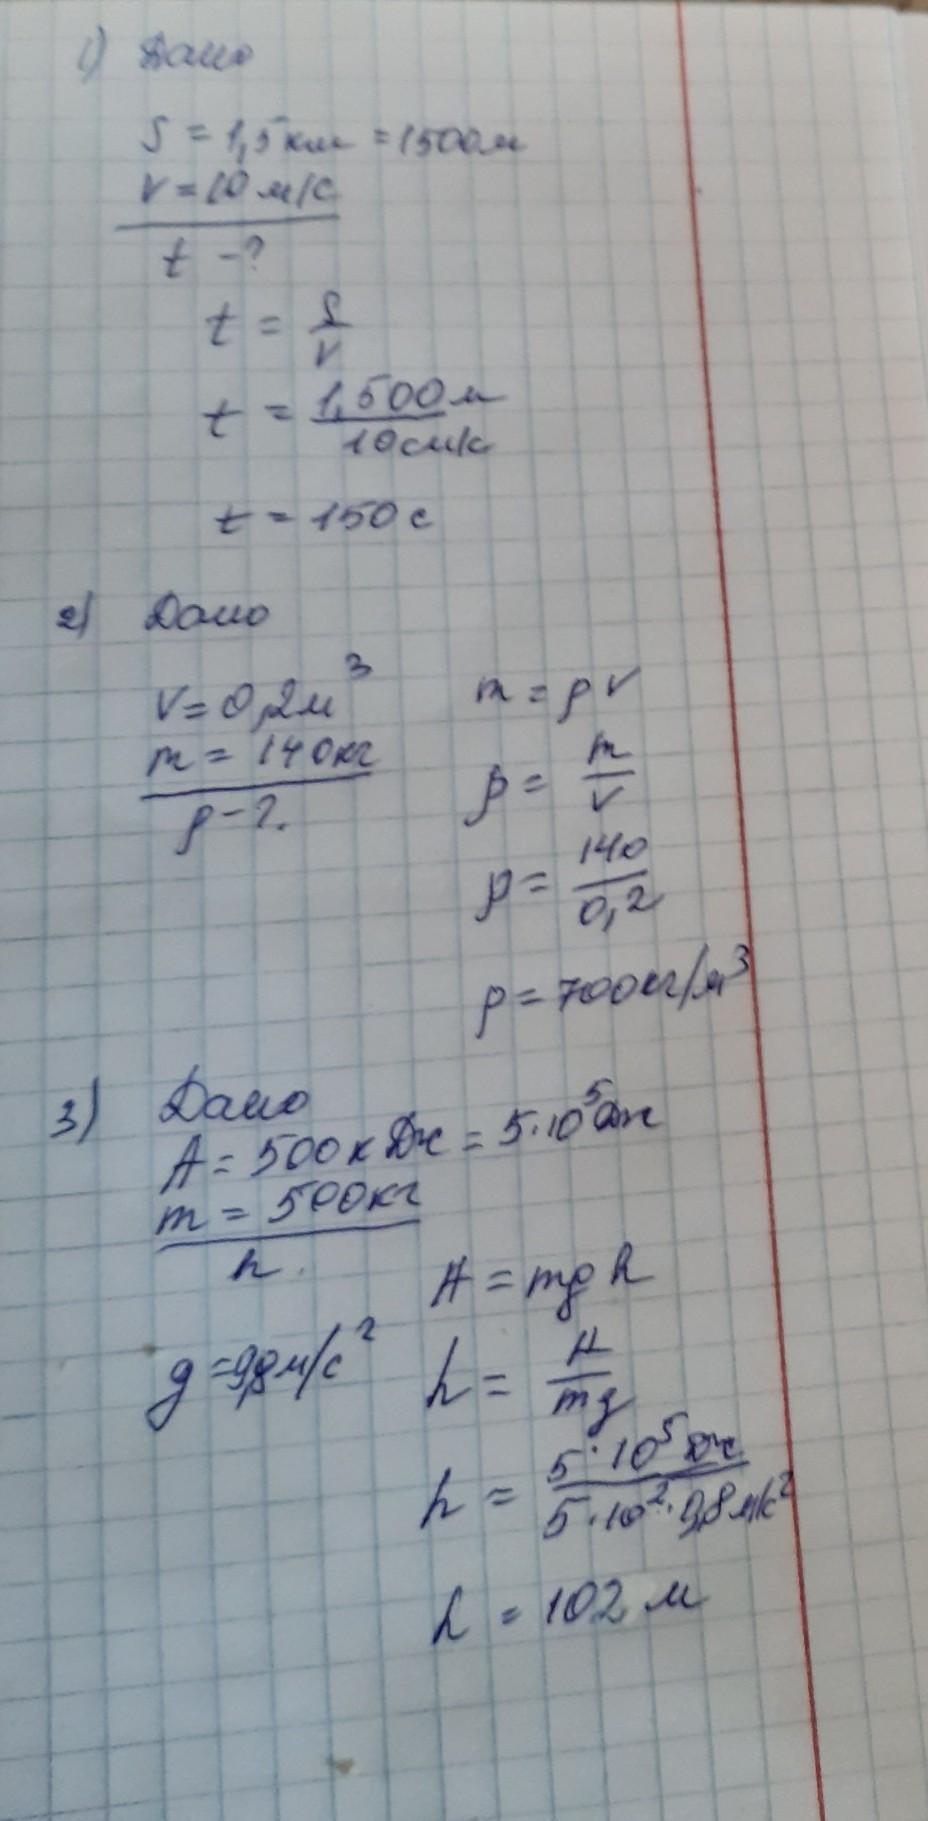 1) Дано
S = 1,5 км = 1500м
v = 10 м/с
t - ?
t = S/v
t = 1,500м/10см/с
t = 150 с
2) Дано
v = 0,2м³
m = 140кг
ρ - ?.
m = ρ v
ρ = m/v
ρ = 140/0,2
ρ = 700кг/м³
3) Дано
A = 500 к Дж = 5·10⁵Дж
m = 500кг
h.
g = 9,8м/с²
A = mg h
h = A/mg
h = 5·10⁵ Дж/5·10²·9,8 м/с²
h = 102 м